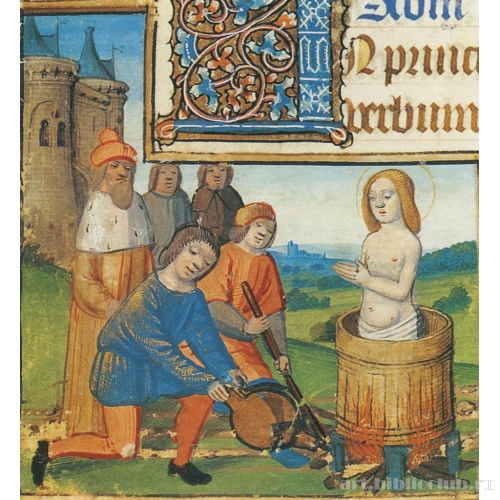 IN princi
verbum
art.biblioclub.ru